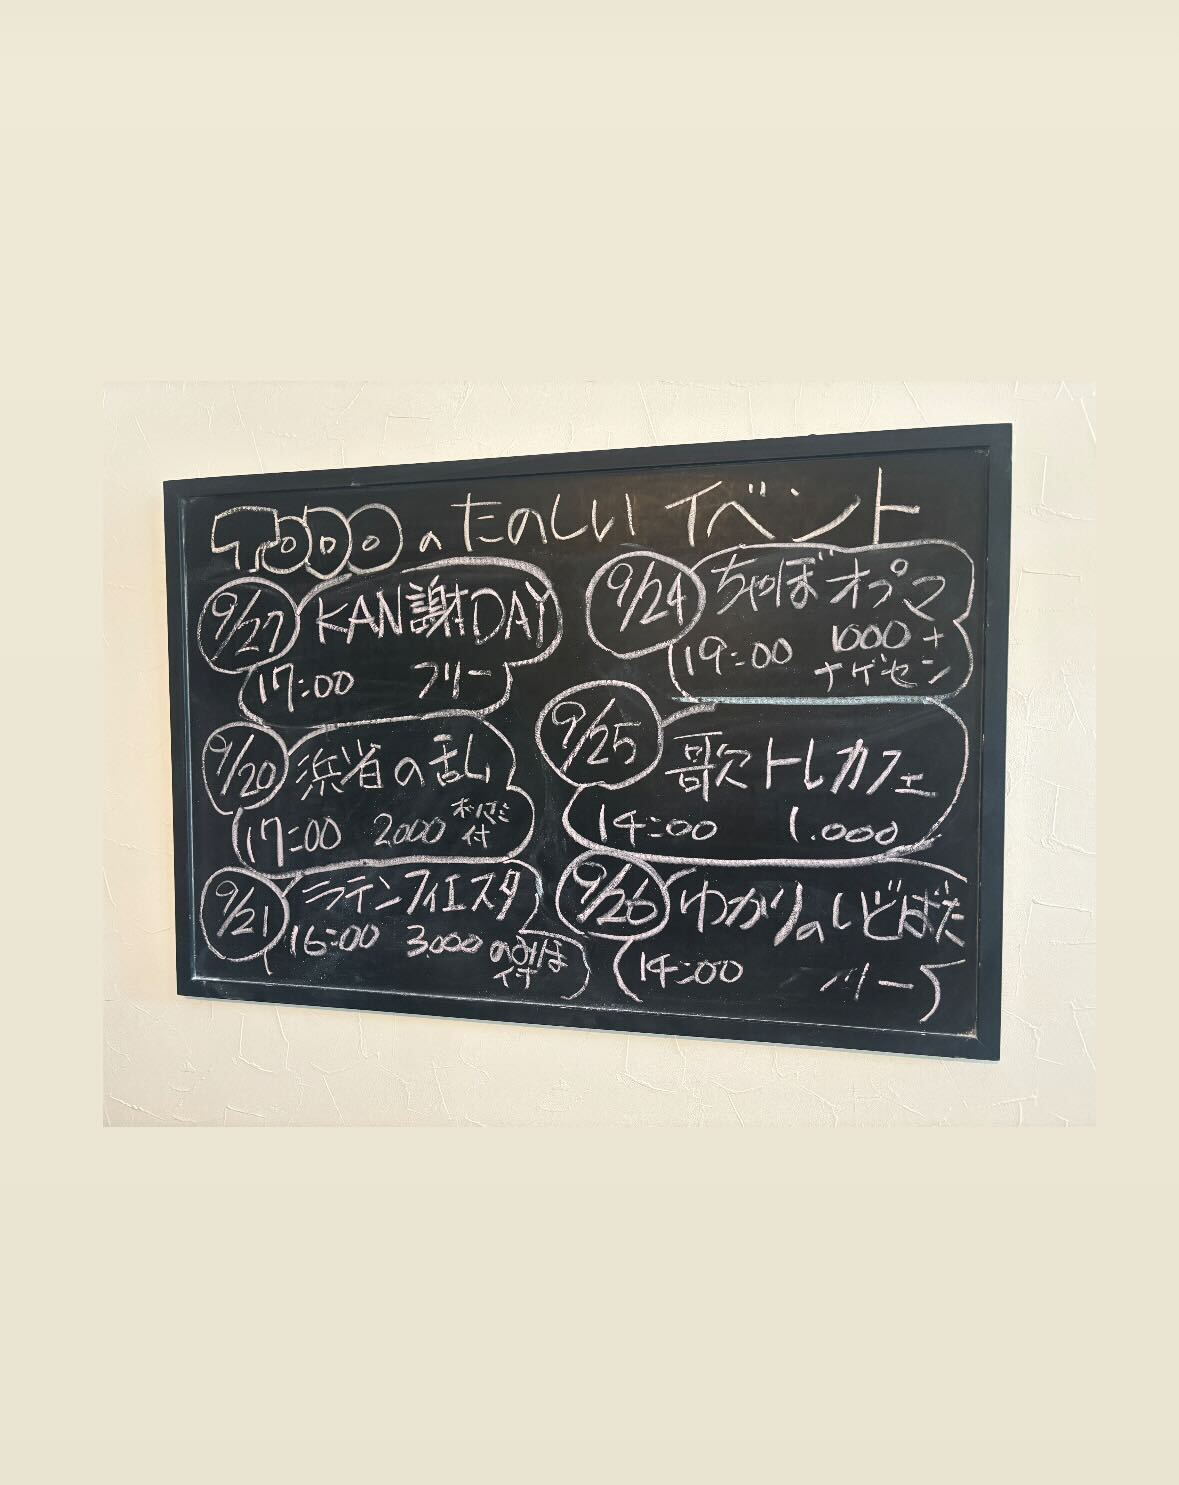 TODOのたのしいイベント
9/27 KAN謝DAY
17:00 フリー
9/20 浜省の乱
17:00 2,000
付
9/21 ラテンフィエスタ
16:00 3,000 のみほ
付
9/24 ちゃぼオプマ
19:00 1000+
ナゲセン
9/25 歌トレカフェ
14:00 1.000
9/26 わかりのいどばた
14:00 フリー